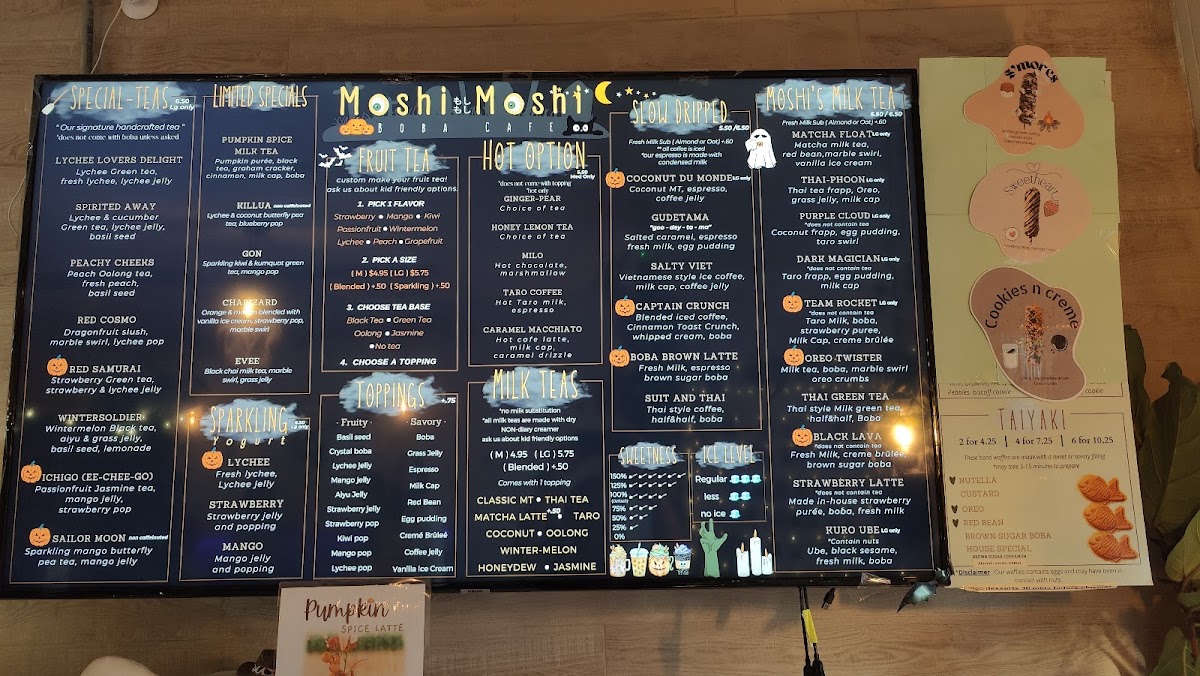 SPECIAL-TEAS 6.50
Lg only
"Our signature handcrafted tea"
*does not come with boba unless asked
LYCHEE LOVERS DELIGHT
Lychee Green tea,
fresh lychee, lychee jelly
SPIRITED AWAY
Lychee & cucumber
Green tea, lychee jelly,
basil seed
PEACHY CHEEKS
Peach Oolong tea,
fresh peach,
basil seed
RED COSMO
Dragonfruit slush,
marble swirl, lychee pop
RED SAMURAI
Strawberry Green tea,
strawberry & lychee jelly
WINTERSOLDIER
Wintermelon Black tea,
aiyu & grass jelly,
basil seed, lemonade
ICHIGO (EE-CHEE-GO)
Passionfruit Jasmine tea,
mango jelly,
strawberry pop
SAILOR MOON non caffeinated
Sparkling mango butterfly
pea tea, mango jelly
LIMITED SPECIALS
PUMPKIN SPICE
MILK TEA
Pumpkin purée, black
tea, graham cracker,
cinnamon, milk cap, boba
KILLUA non caffeinated
Lychee & coconut butterfly pea
tea, blueberry pop
GON
Sparkling kiwi & kumquat green
tea, mango pop
CHARIZARD
Orange & mango blended with
vanilla ice cream, strawberry pop,
marble swirl
EVEE
Black chai milk tea, marble
swirl, grass jelly
SPARKLING
Yogurt
Lg only
LYCHEE
Fresh lychee,
Lychee jelly
STRAWBERRY
Strawberry jelly
and popping
MANGO
Mango jelly
and popping
Moshi もしもし Moshi
BOBA CAFE
FRUIT TEA
custom make your fruit tea!
ask us about kid friendly options.
1. PICK 1 FLAVOR
Strawberry • Mango • Kiwi
Passionfruit • Wintermelon
Lychee • Peach • Grapefruit
2. PICK A SIZE
( M ) $4.95 ( LG ) $5.75
( Blended ) +.50 ( Sparkling ) +.50
3. CHOOSE TEA BASE
Black Tea • Green Tea
Oolong • Jasmine
• No tea
4. CHOOSE A TOPPING
TOPPINGS +.75
· Fruity ·
Basil seed
Crystal boba
Lychee jelly
Mango jelly
Aiyu Jelly
Strawberry jelly
Strawberry pop
Kiwi pop
Mango pop
Lychee pop
· Savory ·
Boba
Grass Jelly
Espresso
Milk Cap
Red Bean
Egg pudding
Cremé Brûleé
Coffee jelly
Vanilla Ice Cream
HOT OPTION
Med Only
*does not come with topping
*hot only
GINGER-PEAR
Choice of tea
HONEY LEMON TEA
Choice of tea
MILO
Hot chocolate,
marshmallow
TARO COFFEE
Hot Taro milk,
espresso
CARAMEL MACCHIATO
Hot cofe latte,
milk cap,
caramel drizzle
MILK TEAS
*no milk substitution
*all milk teas are made with dry
NON-diary creamer
ask us about kid friendly options
( M ) 4.95 ( LG ) 5.75
( Blended ) +.50
Comes with 1 topping
CLASSIC MT • THAI TEA
MATCHA LATTE +.50 • TARO
COCONUT • OOLONG
WINTER-MELON
HONEYDEW • JASMINE
SLOW DRIPPED
5.50 /6.50
Fresh Milk Sub ( Almond or Oat) +.60
** all coffee is iced
*our espresso is made with
condensed milk
COCONUT DU MONDE LG only
Coconut MT, espresso,
coffee jelly
GUDETAMA
"goo - dey - ta - ma"
Salted caramel, espresso
fresh milk, egg pudding
SALTY VIET
Vietnamese style ice coffee,
milk cap, coffee jelly
CAPTAIN CRUNCH
Blended iced coffee,
Cinnamon Toast Crunch,
whipped cream, boba
BOBA BROWN LATTE
Fresh Milk, espresso
brown sugar boba
SUIT AND THAI
Thai style coffee,
half&half, boba
SWEETNESS
150%
125%
100%
75%
50%
25%
0%
ICE LEVEL
Regular
less
no ice
MOSHI'S MILK TEA
5.50 / 6.50
Fresh Milk Sub ( Almond or Oat) +.60
MATCHA FLOAT LG only
Matcha milk tea,
red bean,marble swirl,
vanilla ice cream
THAI-PHOON LG only
Thai tea frapp, Oreo,
grass jelly, milk cap
PURPLE CLOUD LG only
*does not contain tea
Coconut frapp, egg pudding,
taro swirl
DARK MAGICIAN LG only
*does not contain tea
Taro frapp, egg pudding,
milk cap
TEAM ROCKET LG only
*does not contain tea
Taro Milk, boba,
strawberry puree,
Milk Cap, creme brûlée
OREO TWISTER
Milk tea, boba, marble swirl
oreo crumbs
THAI GREEN TEA
Thai style Milk green tea,
half&half, Boba
BLACK LAVA
*does not contain tea
Fresh Milk, creme brûlée,
brown sugar boba
STRAWBERRY LATTE
*does not contain tea
Made in-house strawberry
purée, boba, fresh milk
KURO UBE LG only
*Contain nuts
Ube, black sesame,
fresh milk, boba
S'mores
Sweetheart
Cookies n creme
TAIYAKI
2 for 4.25 | 4 for 7.25 | 6 for 10.25
These hand waffles are made with a sweet or savory filling
*may take 5-15 minutes to prepare
NUTELLA
CUSTARD
OREO
RED BEAN
BROWN SUGAR BOBA
HOUSE SPECIAL
*Disclaimer: Our waffles contains eggs and may have been in
contact with nuts.
Pumpkin
SPICE LATTE